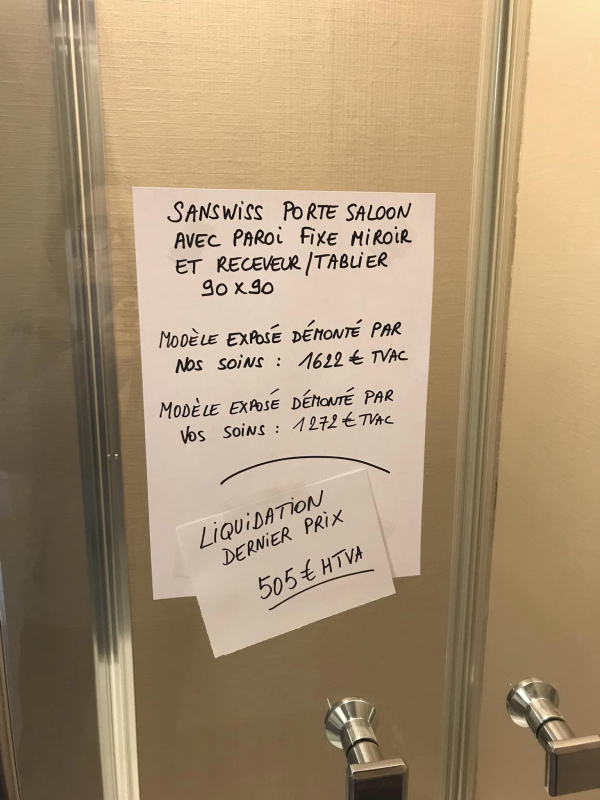 SANSWISS PORTE SALOON
AVEC PAROI FIXE MIROIR
ET RECEVEUR/TABLIER
90 x 90
MODÈLE EXPOSÉ DÉMONTÉ PAR
NOS SOINS : 1622 € TVAC
MODÈLE EXPOSÉ DÉMONTÉ PAR
VOS SOINS : 1272 € TVAC
LIQUIDATION
DERNIER PRIX
505 € HTVA